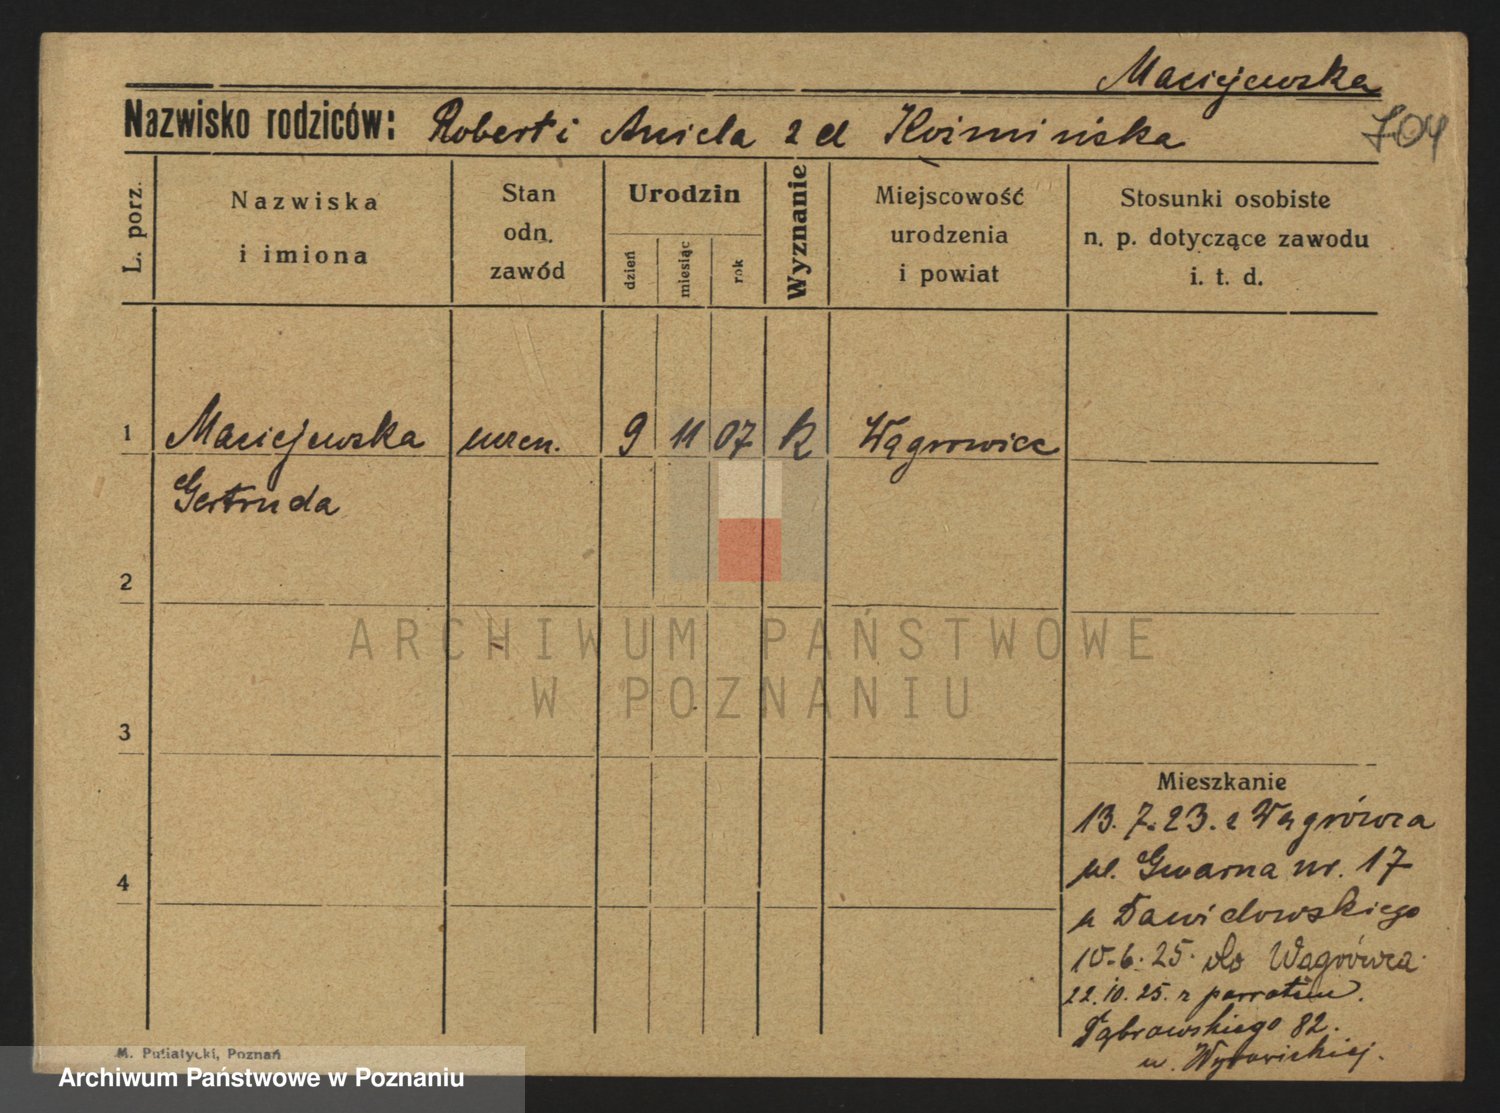 Maciejewska
Nazwisko rodziców: Robert i Aniela z d Koźmińska
704
L. porz.
Nazwiska
i imiona
Stan
odn.
zawód
Urodzin
dzień
miesiąc
rok
Wyznanie
Miejscowość
urodzenia
i powiat
Stosunki osobiste
n. p. dotyczące zawodu
i. t. d.
1 Maciejewska uczen. 9 11 07 k Wągrowiec
Gertruda
2
ARCHIWUM PAŃSTWOWE
W POZNANIU
3
Mieszkanie
13. 7. 23. z Wągrówca
ul. Gwarna nr. 17
4
u Dawidowskiego
10. 6. 25. do Wągrówca
22. 10. 25. z powrotem.
Dąbrowskiego 82.
u.
M. Putiatycki, Poznań
Archiwum Państwowe w Poznaniu